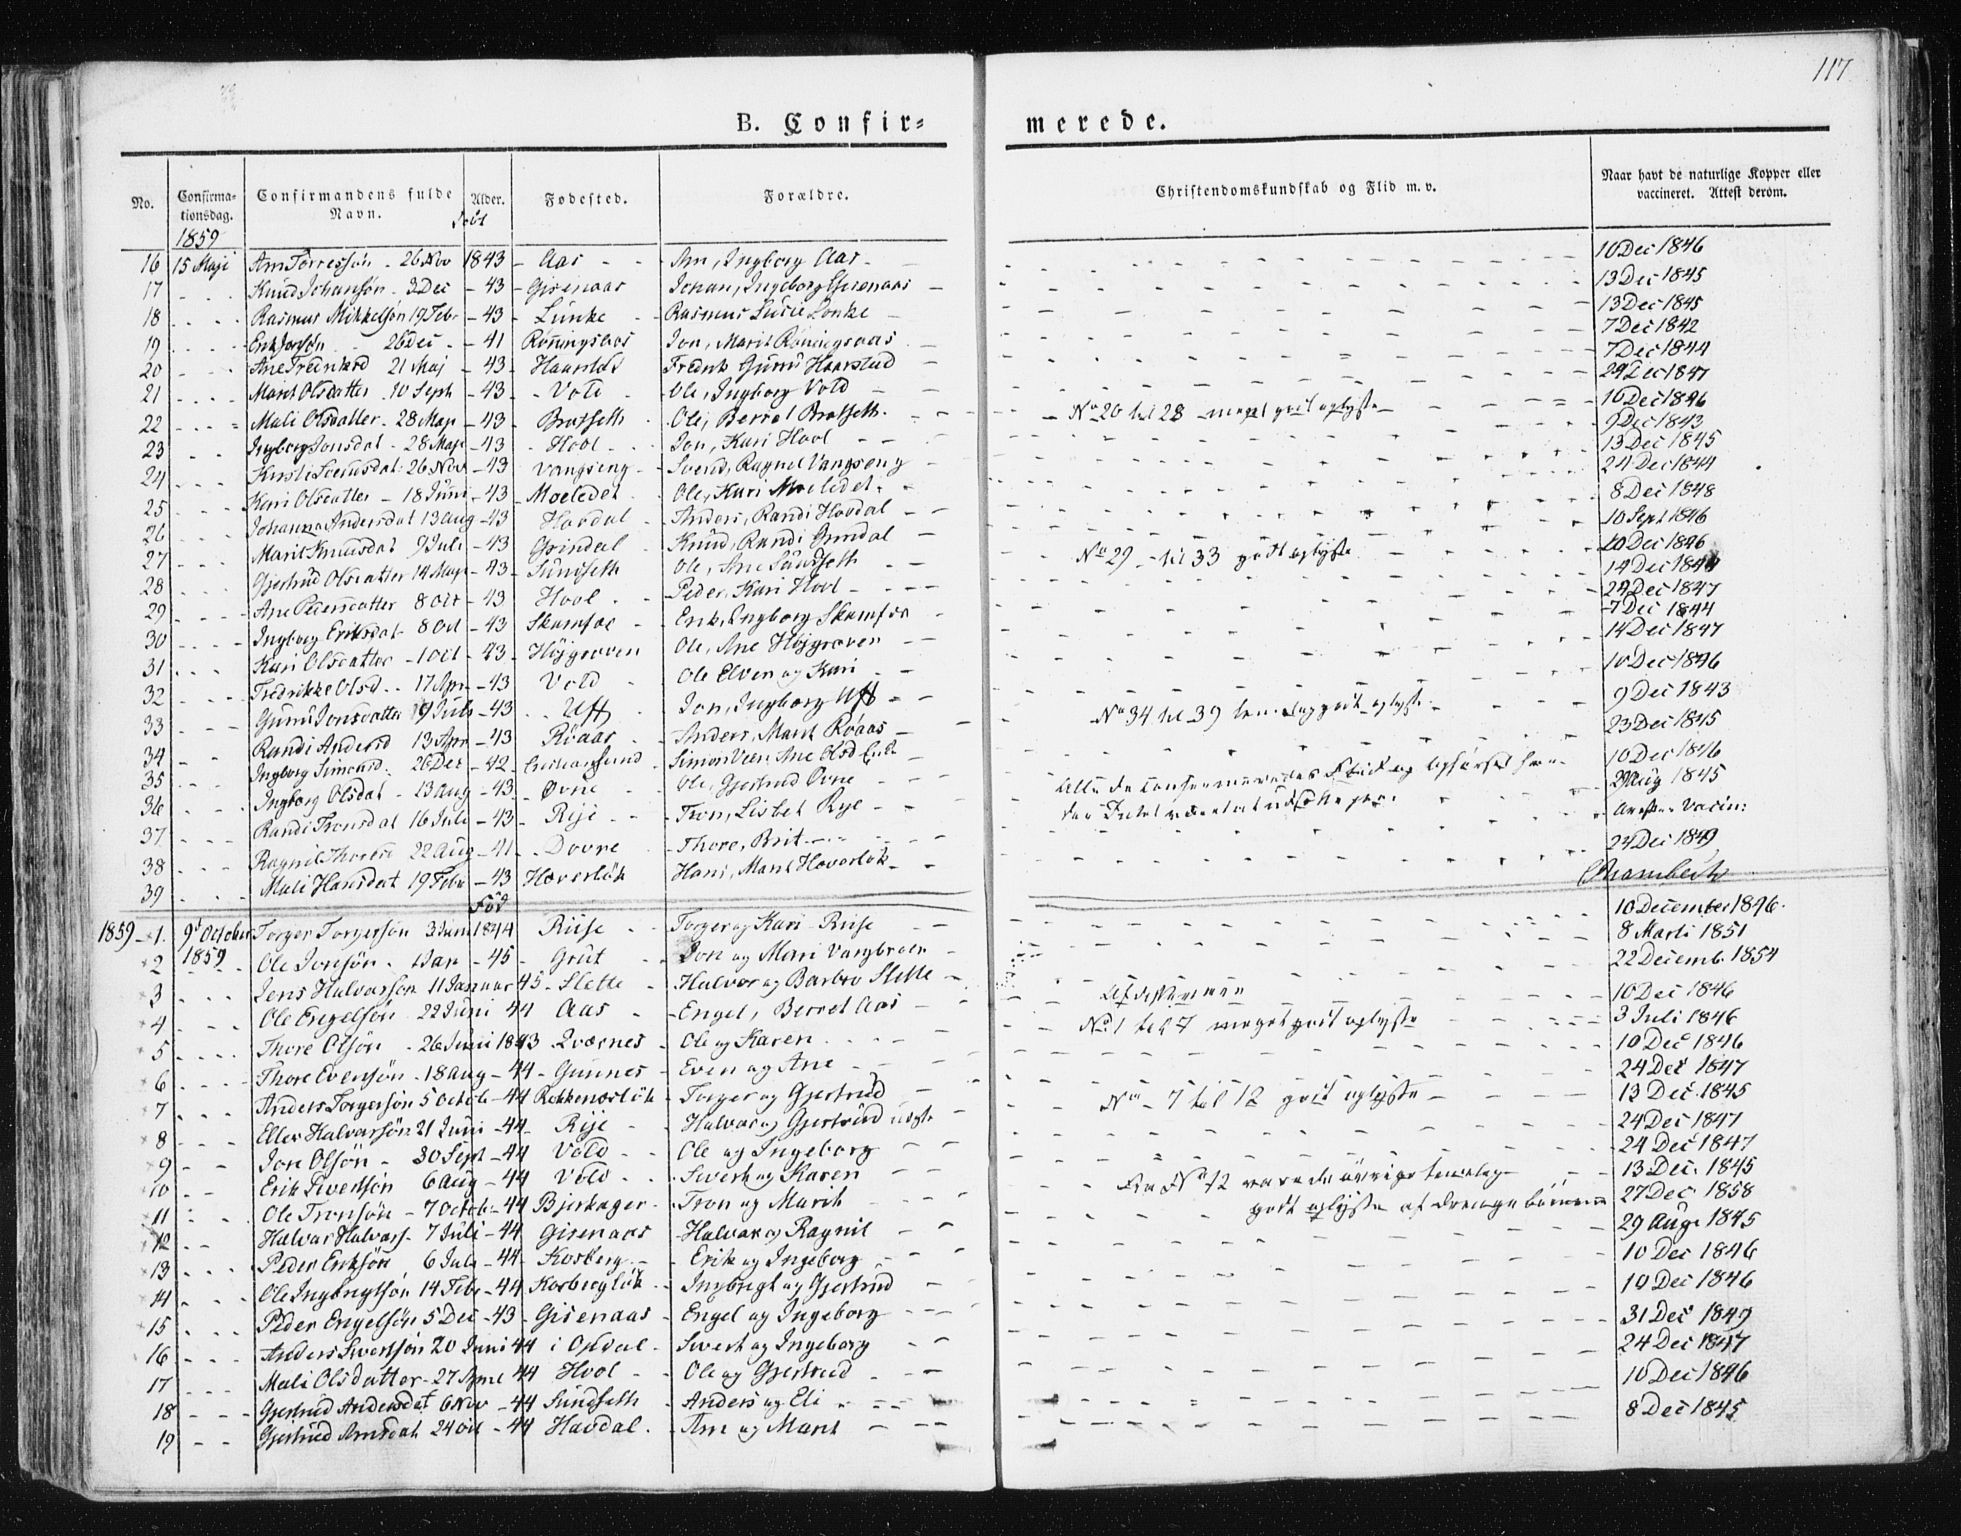 117
B. Confir= merede.
No. Confirma-tionsdag. Confirmandens fulde Navn. Alder. Fødested. Forældre. Christendomskundskab og Flid m. v. Naar havt de naturlige Kopper eller vaccineret. Attest derom.
1859 Født
16 15 Maji Arn Torresøn - 26 Nov 1843 - Aas - Arn, Ingborg Aas - 10 Dec 1846
17 Knud Johansøn - 3 Dec - 43 - Gisenaas Johan, Ingeborg Gisenaas 13 Dec 1845
18 Rasmus Mikkelsøn 19 Febr - 43 - Lunke Rasmus Lonke 13 Dec 1845
19 Erik Jonsøn 26 Dec - 41 Rönningsaas Jon, Marit Rönningsaas 7 Dec 1842
20 21 Maj - 43 - Haarstad Fredrik Guru Haarstad 7 Dec 1844
21 Marit Olsdatter 10 Sept - 43 - Vold Ole, Ingborg Vold 24 Dec 1847
22 Mali Olsdatter - 28 Maji - 43 - Bratseth Ole, Berret Bratseth No 20 til 28 meget godt oplyste 16 Dec 1846
23 Ingborg Jonsdat - 28 Maji - 43 - Hool Jon, Kari Hool 9 Dec 1843
24 26 Nov - 43 Vangseng Svend, Ragnel Vangseng 13 Dec 1845
25 Kari Olsdatter - 18 Juni - 43 - Moeledet Ole, Kari Moeledet 24 Dec 1844
26 Johanna Andersdat 13 Aug - 43 Havdal Anders, Randi Havdal 8 Dec 1848
27 Marit Knudsdat 9 Juli - 43 - Grindal Knud, Randi Grindal 10 Sept 1846
28 Gjertrud Olsdatter 14 Maji - 43 - Sundseth Ole, Ane Sundseth No 29 - til 33 godt oplyste 10 Dec 1846
29 Ane Pedersdatter 8 Oct - 43 Hool Peder, Kari Hool 14 Dec
30 Ingborg Eriksdat - 8 Oct - 43 Skamfoe Erik, Ingborg Skamfoe 24 Dec 1847
31 Kari Olsdatter - 1 Oct - 43 - Höjgraven Ole, Ane Höjgraven 7 Dec 1844
32 Fredrikke Olsd. 17 Apr - 43 Vold Ole Elven og Kari 14 Dec 1847
33 Guru Jonsdatter 19 Juli - 43 - Uff Jon, Ingborg Uff 10 Dec 1846
34 Randi Andersd 13 Apr - 43 Röaas Anders, Marit Röaas No 34 til 39 temelig godt oplyste 9 Dec 1843
35 Ingborg Simonsd. 26 Dec - 42 Simon Ane Olsd 23 Dec 1845
36 Ingborg Olsdat - 13 Aug - 43 - Øvne Ole, Gjertrud Ovne 10 Dec 1846
37 Randi Tronsdat 16 Juli - 43 Rije Tron, Lisbet Rye Alle de Flid og Opførsel 1845
38 Ragnil 22 Aug - 41 - Dovre Thore, Brit
39 Mali Hansdat 19 Febr - 43 Hæverlök Hans, Marit Hæverlök 22 Dec 1849
Fød
1859 - 1. 9d October 1859 Torger Torgersön 3 Juni 1844 Riise Torger og Kari Riise 10 December 1846.
2 Ole Jonsön - 1 Jan - 45 - Grut Jon og Mari 8 Marti 1851
3 Jens Halvarsön 11 Januar 45 - Slette Halvor og Barbro Slette 22 Decemb. 1854
4 Ole Engelsön - 22 Juni 44 Aas Engel, Berret Aas 10 Dec 1846
5 Thore Olsön - 26 Juni 1843 Qværnes Ole og Karen No 1 til 7 meget godt oplyste 3 Juli 1846
6 Thore Evensön - 18 Aug - 44 - Gunnes Even og Ane 10 Dec 1846
7 Anders Torgersön 5 Octob - 44 Rekkenoslök Torger og Gjertrud 24 Dec 1847
8 Elles Halvarsön 21 Juni - 44 Rije Halvar og Gjertrud No - 7 til 12 godt oplyste 13 Dec. 1845
9 Jon Olsön - 30 Sept - 44 Vold Ole og Ingeborg 24 Dec 1847
10 Erik Sivertsön 6 Aug - 44 Vold Sivert og Karen 24 Dec 1847
11 Ole Tronsön - 7 Octob - 44 Bjerkager Tron og Marit Fra No 12 vare de øvrige temelig 13 Dec. 1845
12 Halvar Halvars. 7 Juli - 44 Gisenaas Halvar og Ragnil godt oplyste af Drengebörnene 27 Dec 1858
13 Peder Eriksön 6 Jul - 44 - Kosberg Erik og Ingeborg 29 Aug. 1845
14 Ole Ingbrigtsön 14 Febr - 44 Kosberglök Ingbrigt og Gjertrud 10 Dec 1846
15 Peder Engelsön 5 Dec - 43 - Gisenaas Engel og Ingeborg 10 Dec 1846
16 Anders Sivertsön 20 Juni 44 i Opdal Sivert og Ingeborg 31 Dec 1849
17 Mali Olsdatter - 27 44 Hool Ole og Gjertrud 24 Dec 1847
18 Gjertrud Andersdat 6 Nov - 44 Sundseth Anders og Eli 10 Dec 1846
19 Gjertrud Arnsdat 24 Oct - 44 Havdal Arn og Marit 8 Dec 1845